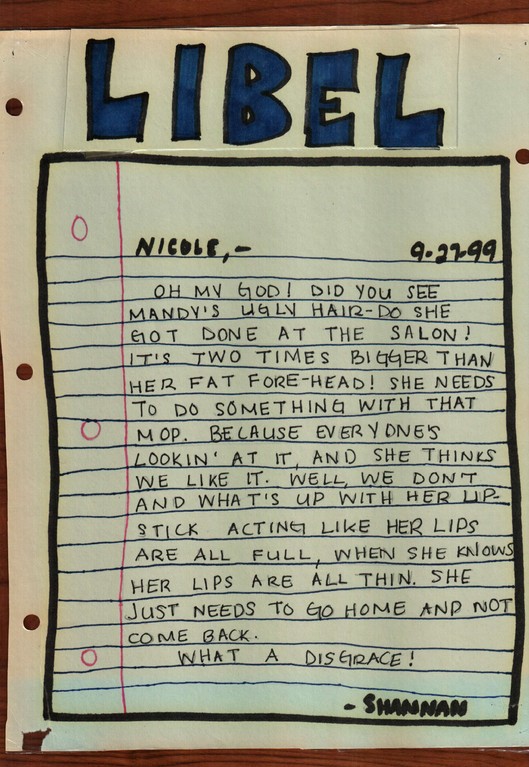 LIBEL
NICOLE,- 9-27-99
OH MY GOD! DID YOU SEE
MANDY'S UGLY HAIR-DO SHE
GOT DONE AT THE SALON!
IT'S TWO TIMES BIGGER THAN
HER FAT FORE-HEAD! SHE NEEDS
TO DO SOMETHING WITH THAT
MOP. BECAUSE EVERYONE'S
LOOKIN' AT IT, AND SHE THINKS
WE LIKE IT. WELL, WE DON'T
AND WHAT'S UP WITH HER LIP-
STICK ACTING LIKE HER LIPS
ARE ALL FULL, WHEN SHE KNOWS
HER LIPS ARE ALL THIN. SHE
JUST NEEDS TO GO HOME AND NOT
COME BACK.
WHAT A DISGRACE!
- SHANNAN